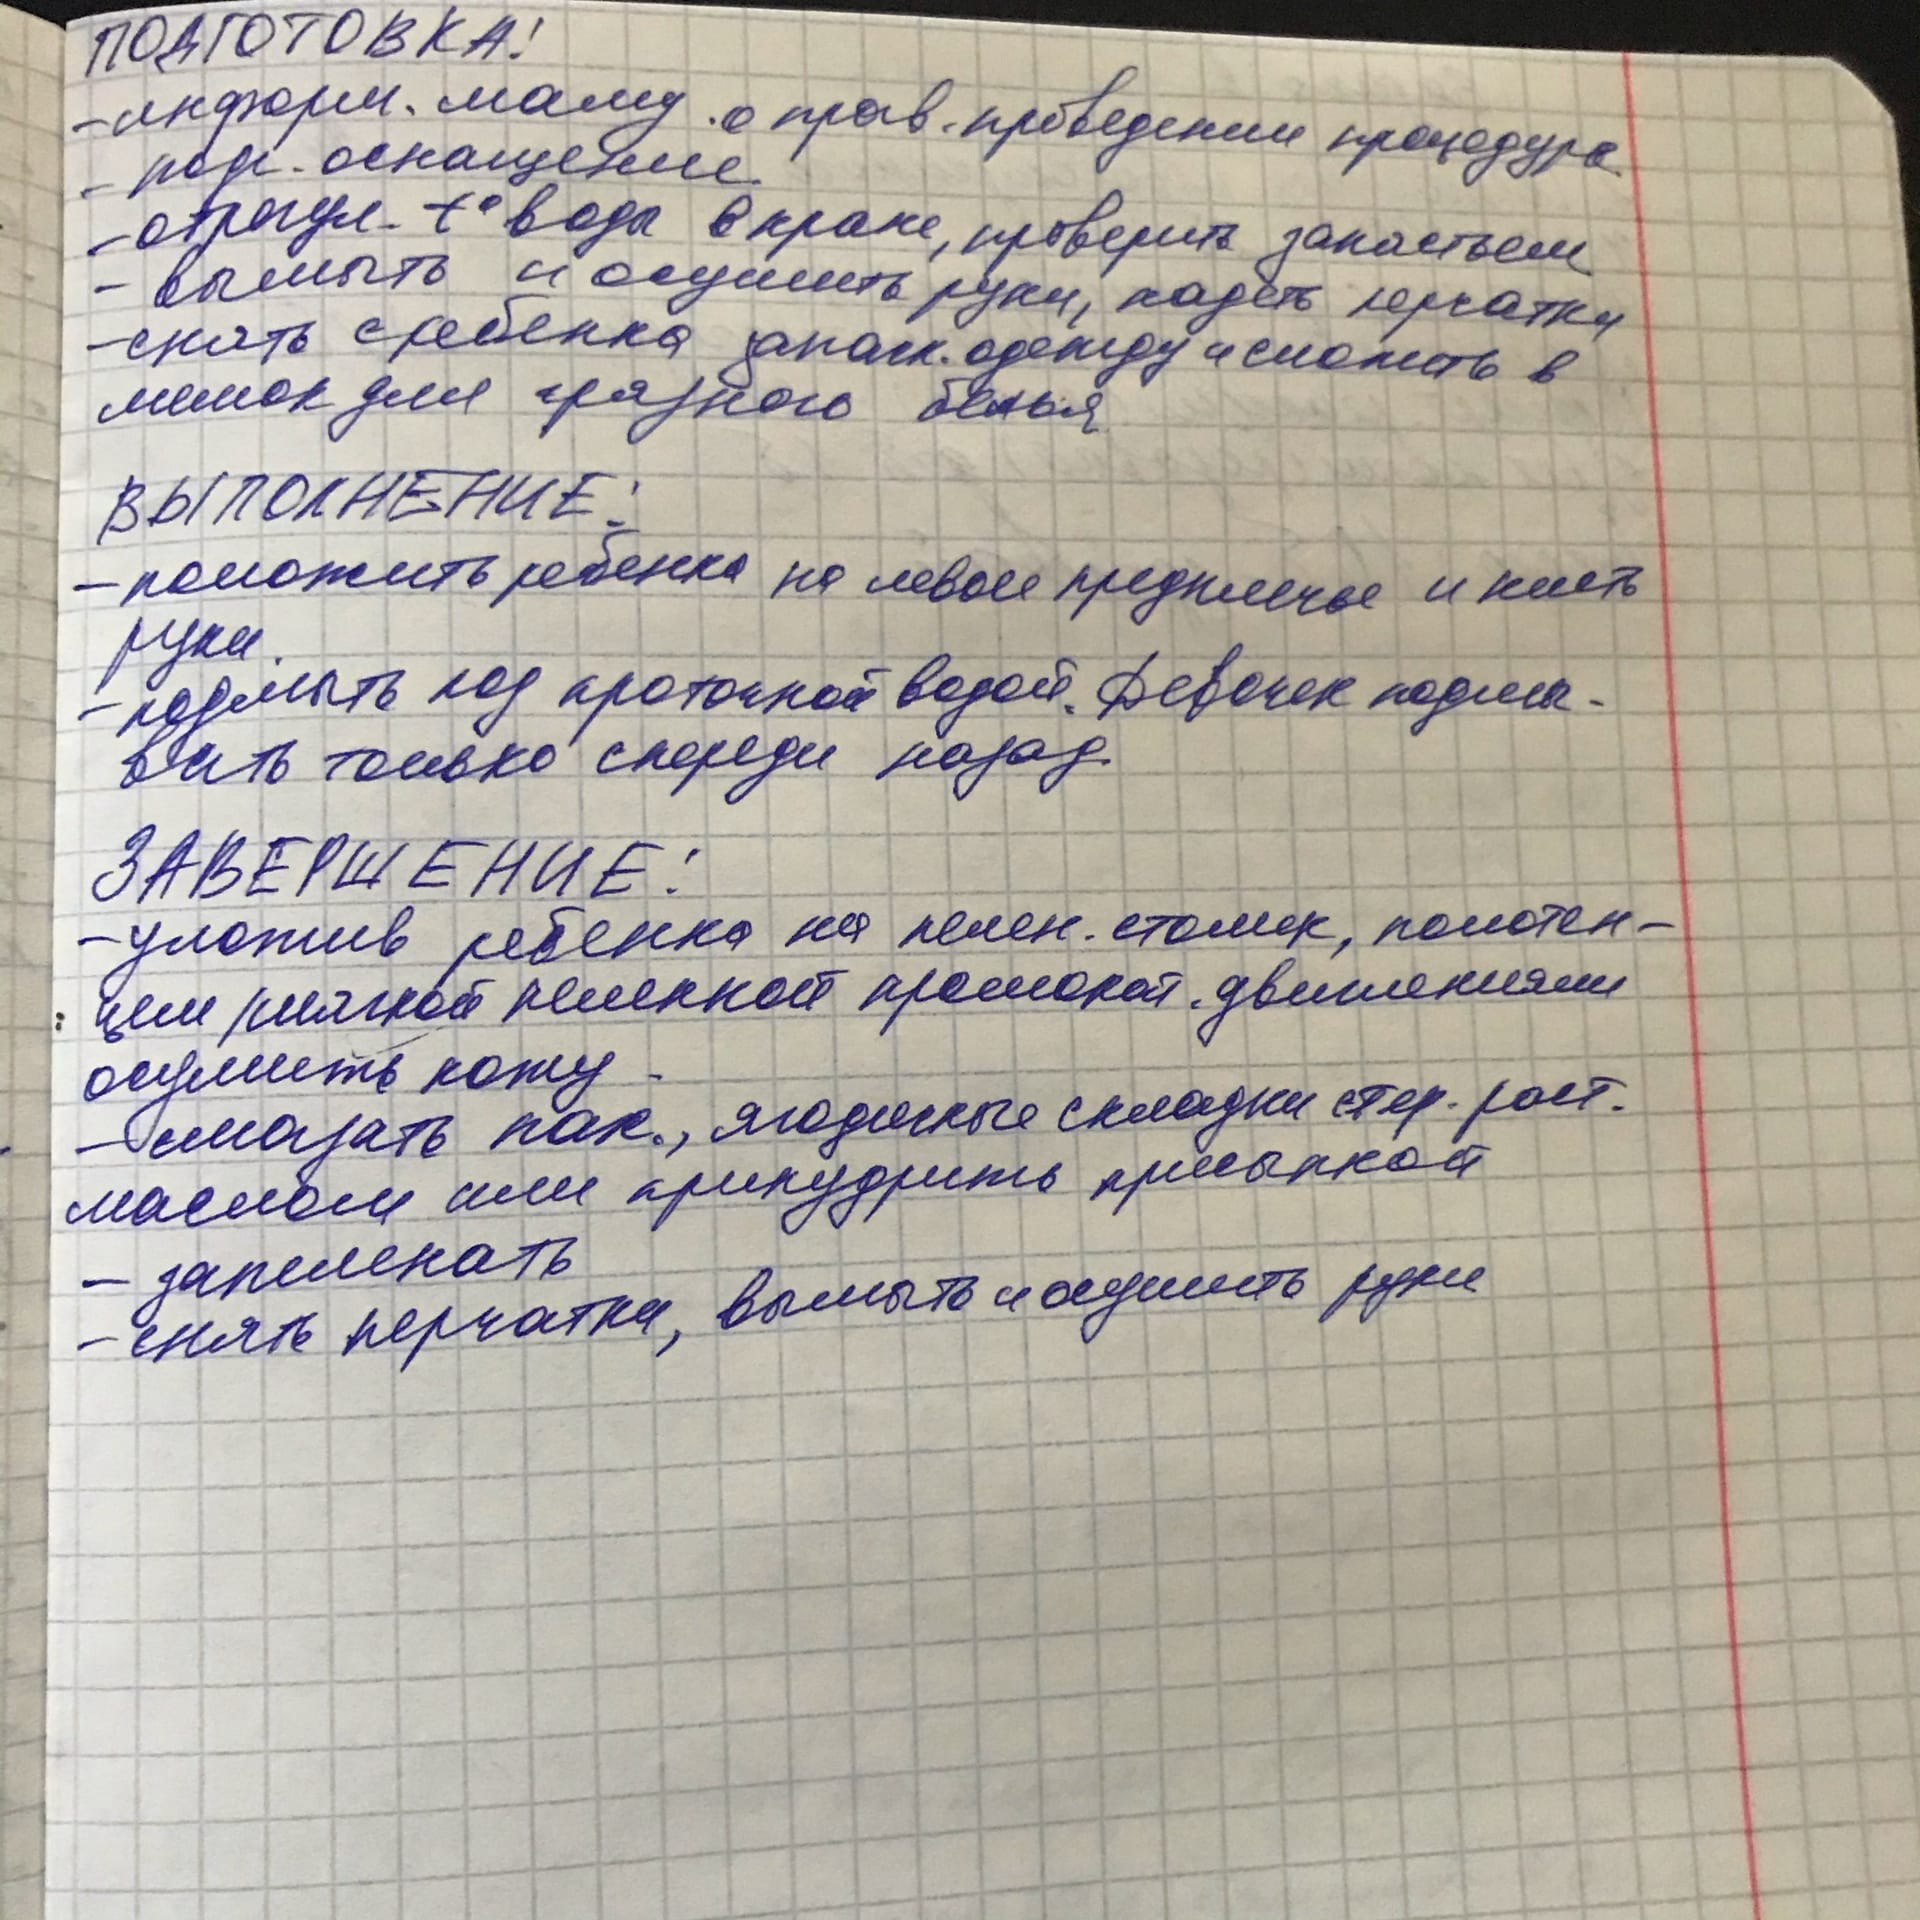 ПОДГОТОВКА!
- информ. маму о прав. проведении процедуре
- подг. оснащение.
- отрегул. t° воды в кране, проверить запястьем
- вымыть и осушить руки, надеть перчатки
- снять с ребенка запачк. одежду и сложить в
мешок для грязного белья
ВЫПОЛНЕНИЕ:
- положить ребенка на левое предплечье и кисть
руки.
- подмыть под проточной водой. Девочек подмы-
вать только спереди назад.
ЗАВЕРШЕНИЕ:
- уложив ребенка на пелен. столик, полотен-
цем/мягкой пеленкой промокат. движениями
осушить кожу
- смазать пах., ягодичные складки стер. раст.
маслом или припудрить присыпкой
- запеленать
- снять перчатки, вымыть и осушить руки